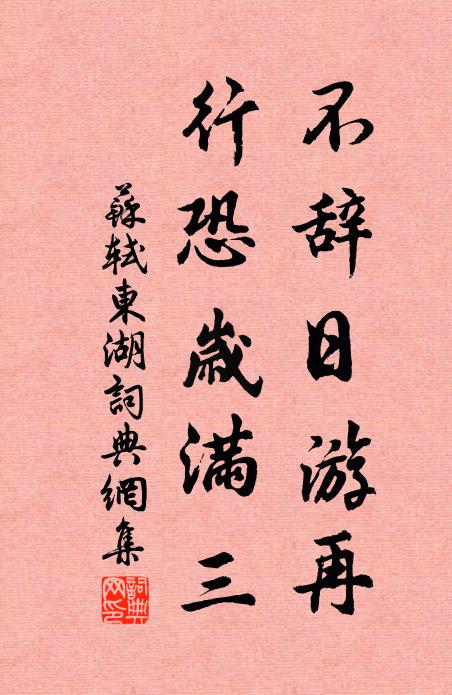 不辞日游再
行恐歲滿三
蘇軾東湖詞典網集
詞典
网印